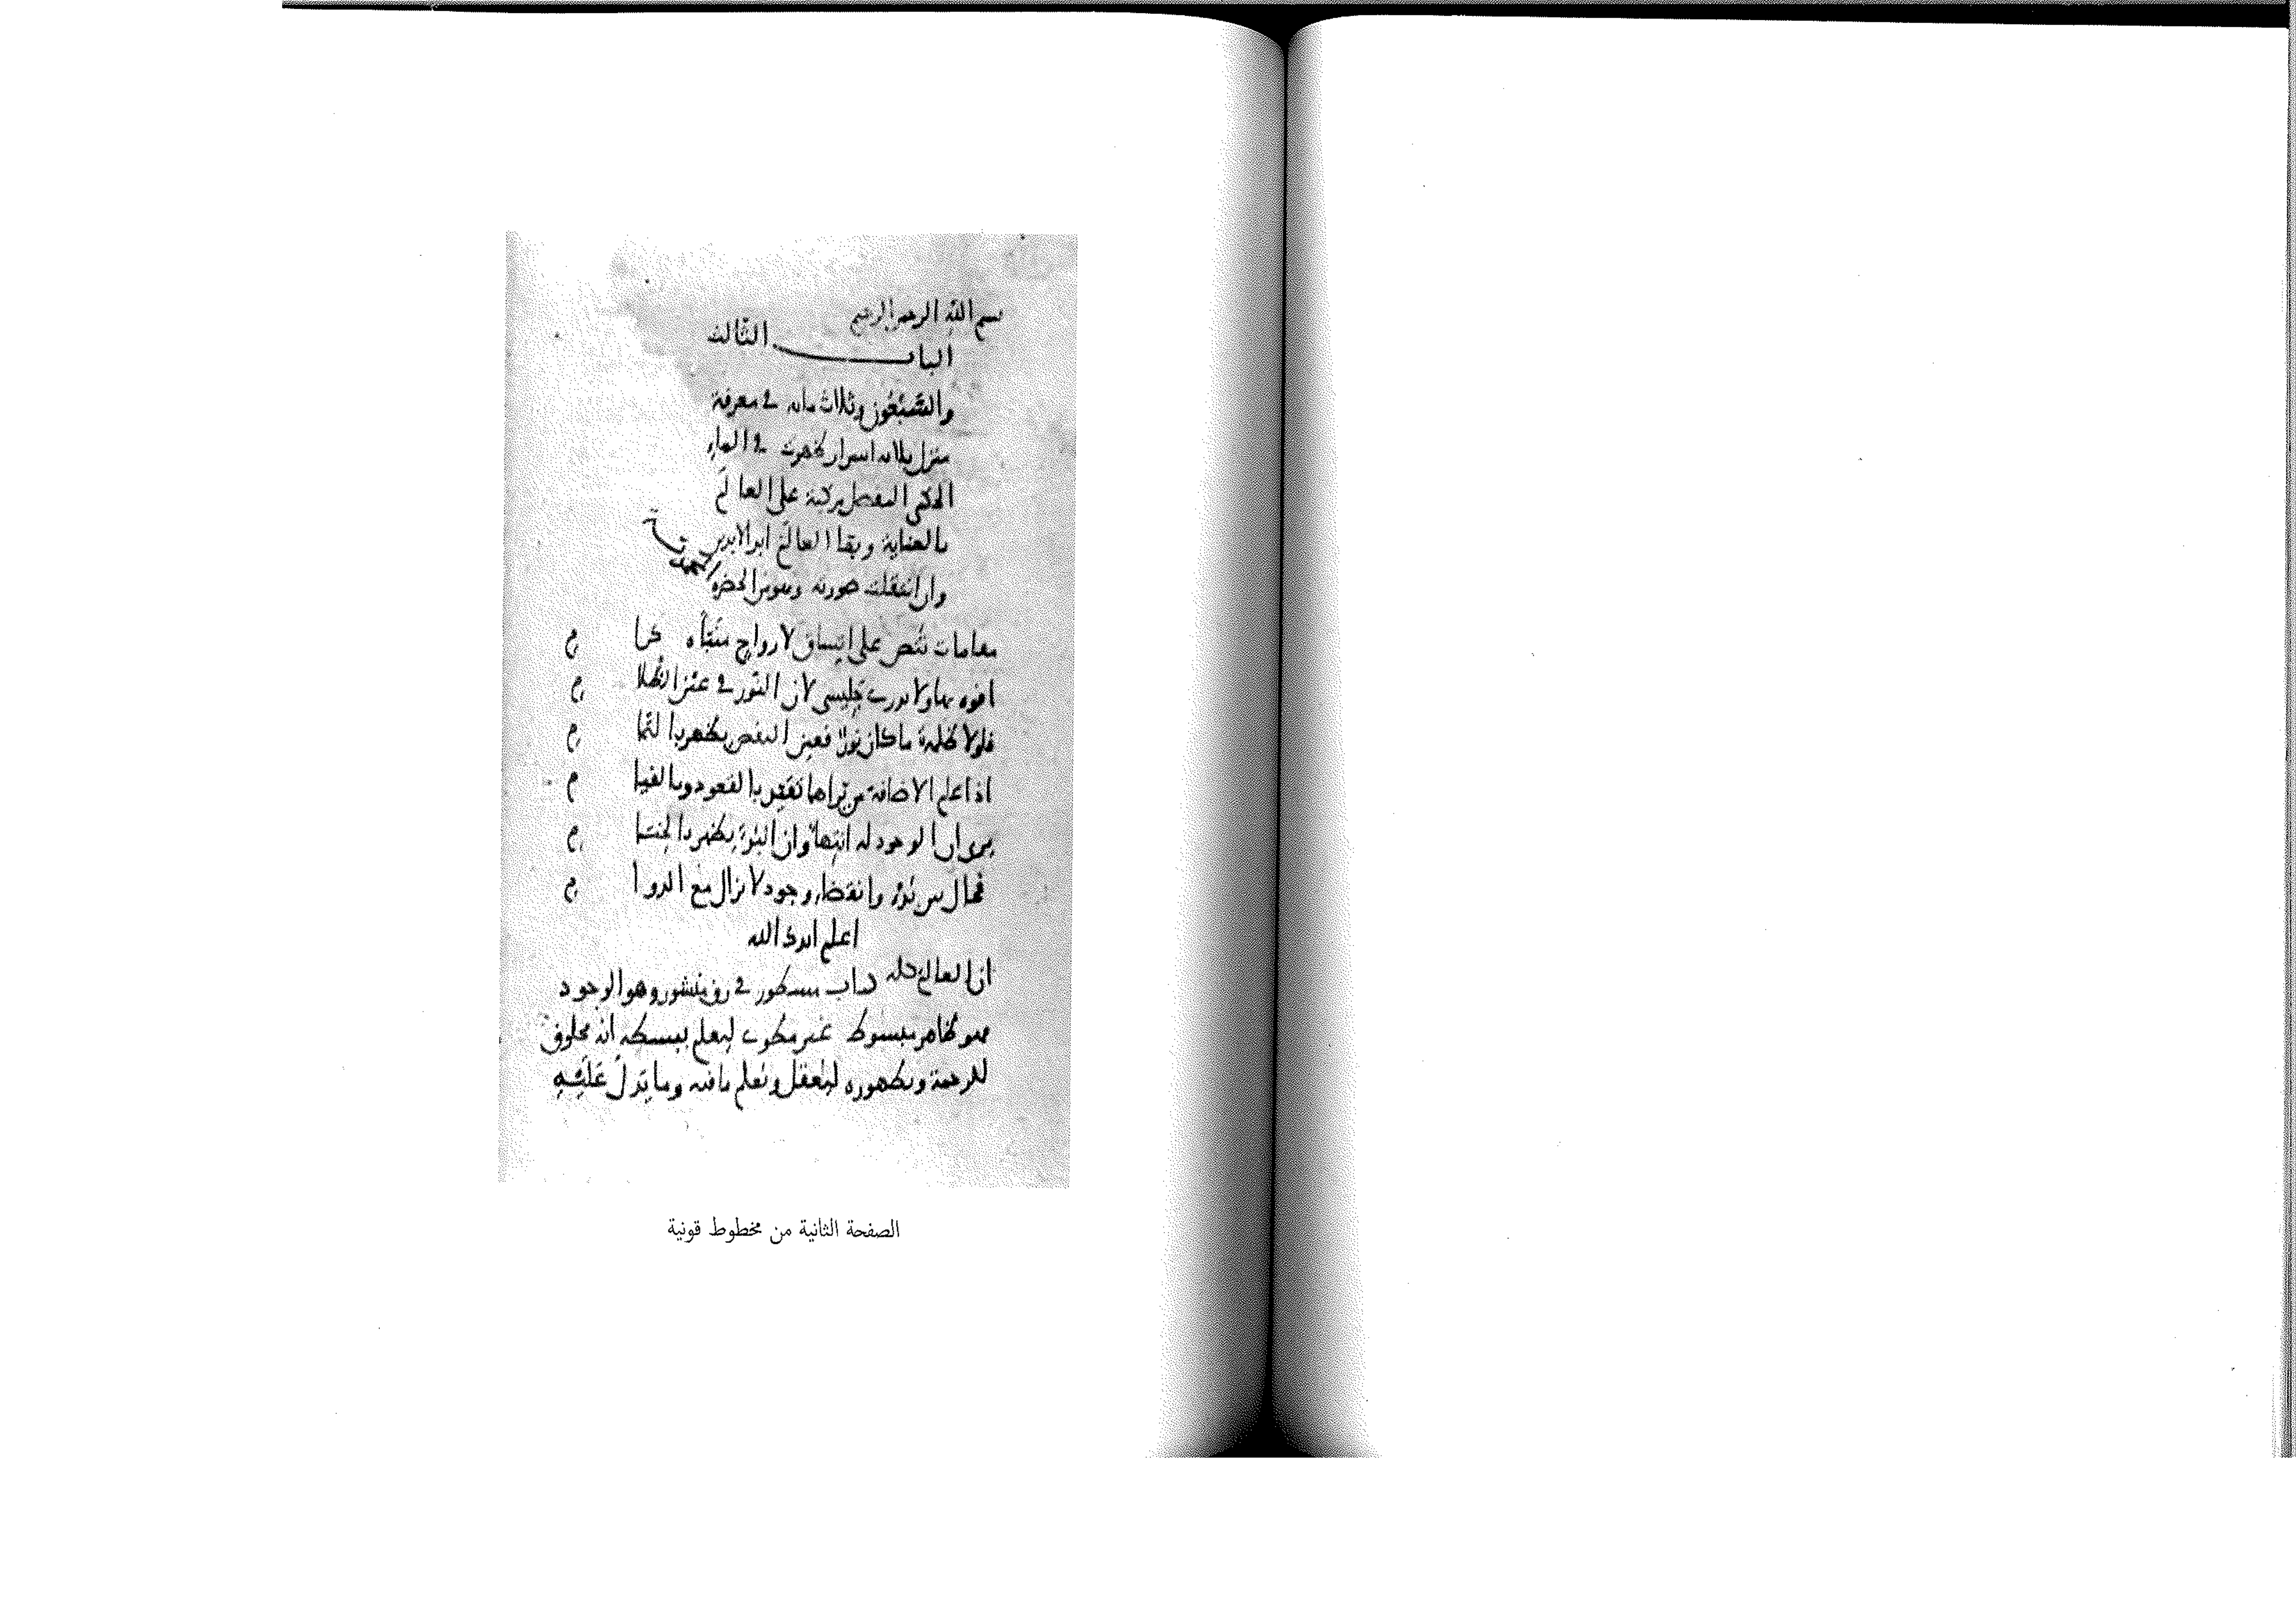 بسم الله الرحمن الرحيم
الباب الثالث
والسَّبْعُون وثلاث مايه في معرفة
منزل ثلاثه اسرار ظهرت في الماء
الحكمى المفضل مرتبته على العالَم
بالعناية وبقا العالَم ابد الابدين
وان انتقلت صورته وهو من الحضره
المحمدية
مقامات تنُص على اتساق لارواحٍ مُنَبّأه كرا م
افوه بها ولا يدرى جليسى لان النّور في عين الظُّلا م
فلولا ظلمة ما كان نورٌ فعين النقص يظهر بالتّما م
اذا علم الاضافة من يراها تقيّد بالقعود وبالقيا م
يرى ان الوجود له انتهاءٌ وان البَدْء يظهر بالختا م
فحال بين بَدْءٍ وانقضاءٍ وجود لا يزال مع الدوا م
اعلم ايدك الله
ان العالم كله كتاب مسطور في رق منشور وهو الوجود
فهو ظاهر مبسوط غير مطوى ليعلم ببسطه انه مخلوق
للرحمة وبظهوره ليعقل ويُعلم ما فيه وما يَدلّ عَلَيْهِ
الصفحة الثانية من مخطوط قونية